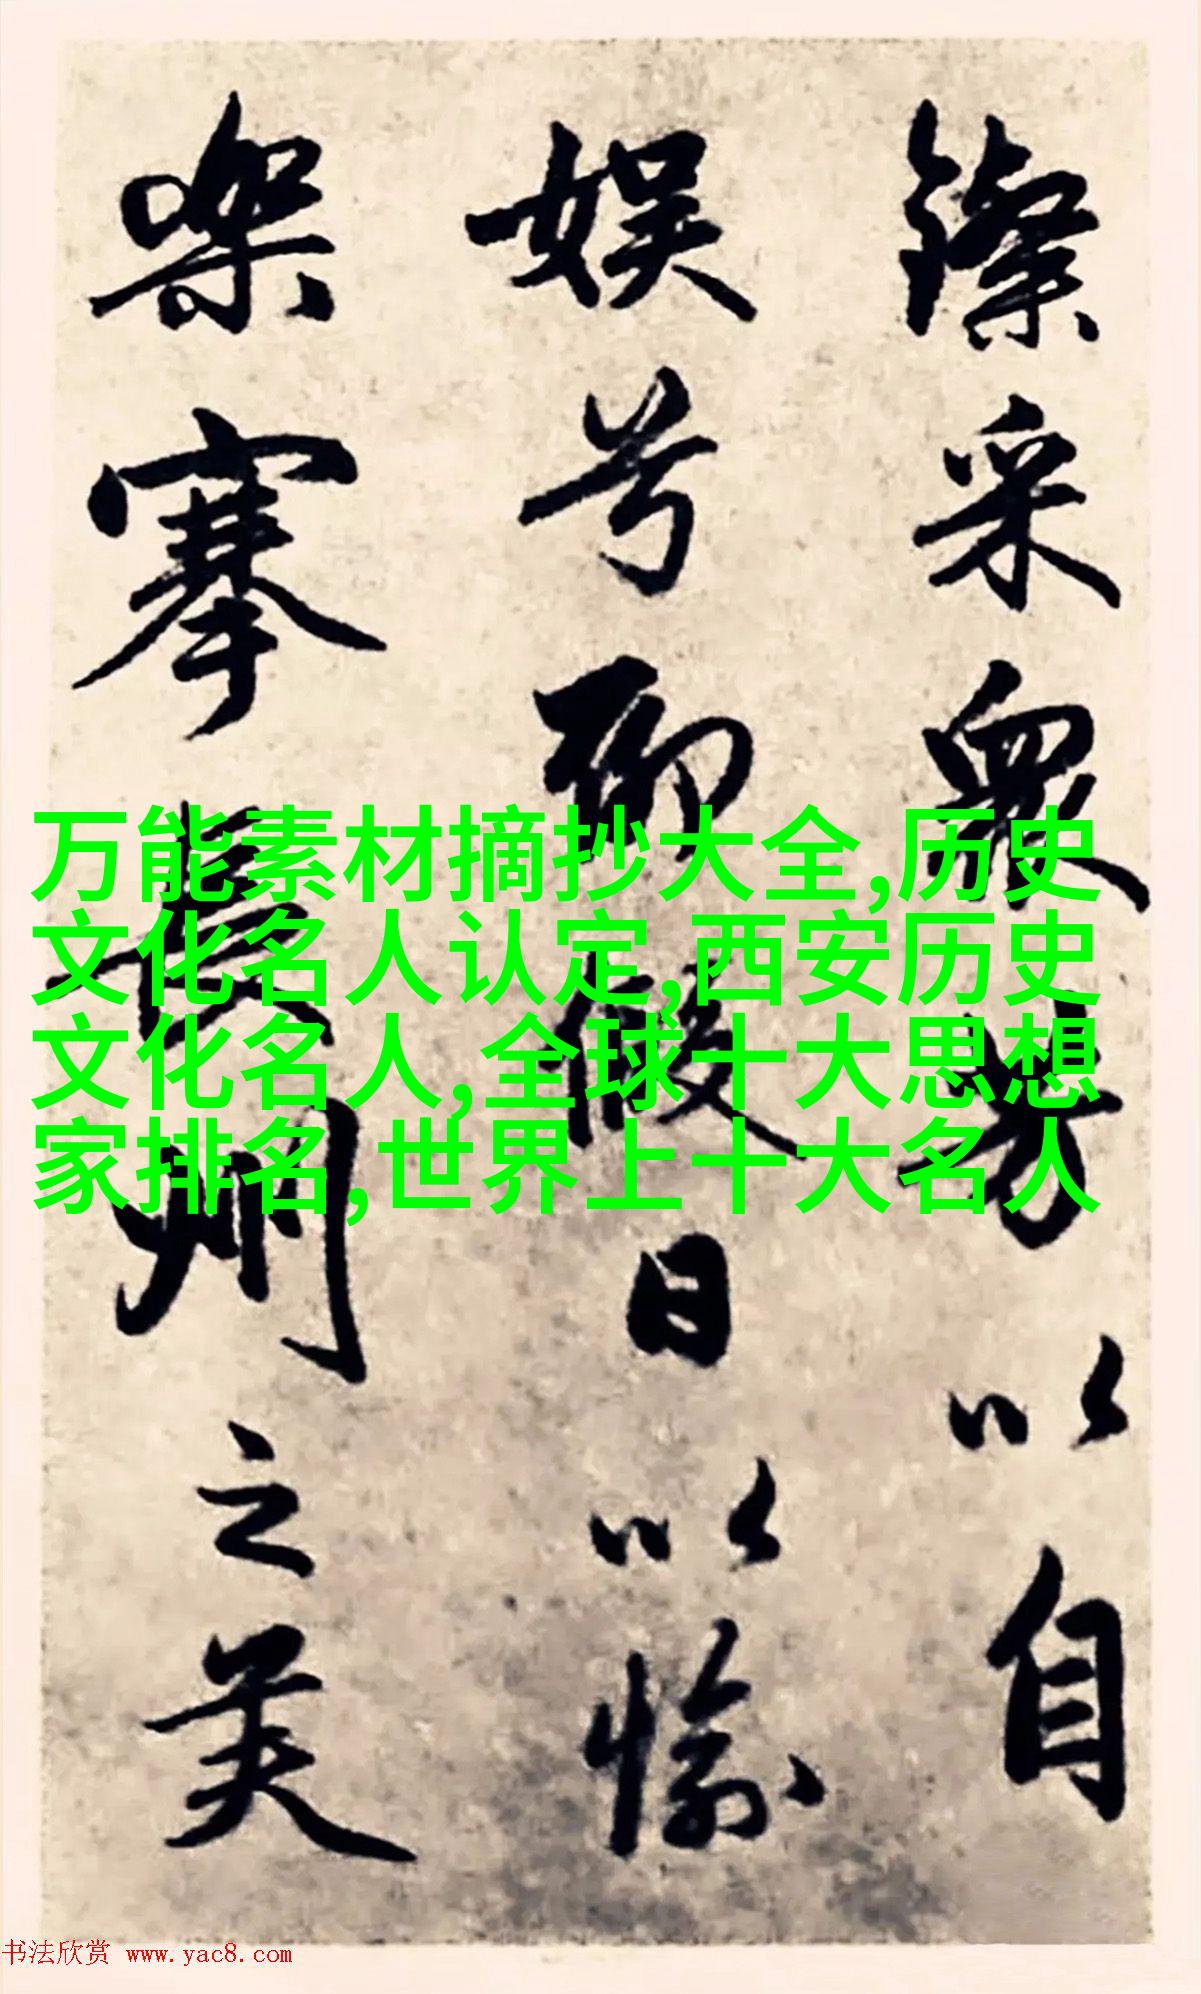 采衆芳以自
娱兮聊假日以愉
樂搴長洲之美
万能素材摘抄大全,历史
文化名人认定,西安历史
文化名人,全球十大思想
家排名,世界上十大名人
书法欣赏 www.yac8.com